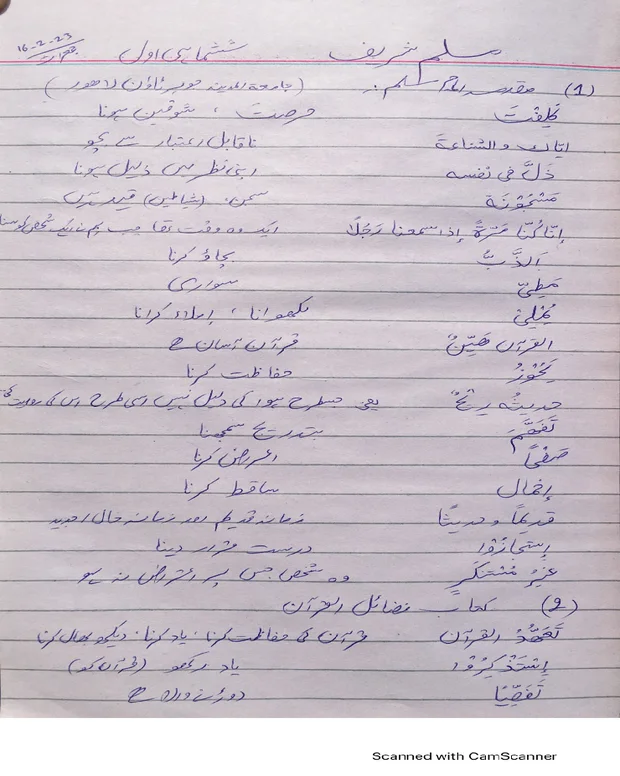 16-2-23
مسلم شریف ششماہی اول جمعرات
(1) مقدمہ امام مسلم (جامعۃ المدینہ جوہر ٹاؤن لاہور)
کَلِفْتَ حرصت، شوقین ہونا
ایاک والشناعۃ ناقابل اعتبار سے بچو
ذلَّ فی نفسہ اپنی نظر میں ذلیل ہونا
مَسْجُوْنَۃ سمن: (شیاطین) قید ہیں
اِنّا کُنّا مَرّۃً اذا سمعنا رَجُلًا ایک وہ وقت تھا جب ہم نے ایک شخص کو سنا
اَلذَّبُّ بچاؤ کرنا
مَطِیّ سواری
یُمْلِیْ لکھوانا، املاء کرانا
القرآن ھَیِّنٌ قرآن آسان ہے
یَحُوْزُ حفاظت کرنا
حدیثُہ رِیْحٌ یعنی جسطرح ہوا کی دلیل نہیں اسی طرح اس کی
تَفَھَّمَ بتدریج سمجھنا
صَفْحًا اعراض کرنا
اِخْمال ساقط کرنا
قدیمًا وحدیثًا زمانہ قدیم اور زمانہ حال/جدید
اِسْتَجَازُوْا درست قرار دینا
غیرُ مُسْتَنْکَرٍ وہ شخص جس پر اعتراض نہ ہو
(2) کتاب فضائل القرآن
تَعَھُّدُ القرآن قرآن کی حفاظت کرنا، یاد کرنا، دیکھ بھال کرنا
اِسْتَذْکِرُوْا یاد رکھو (قرآن کو)
تَفَصِّیًا دوڑنے والا ہے
Scanned with CamScanner